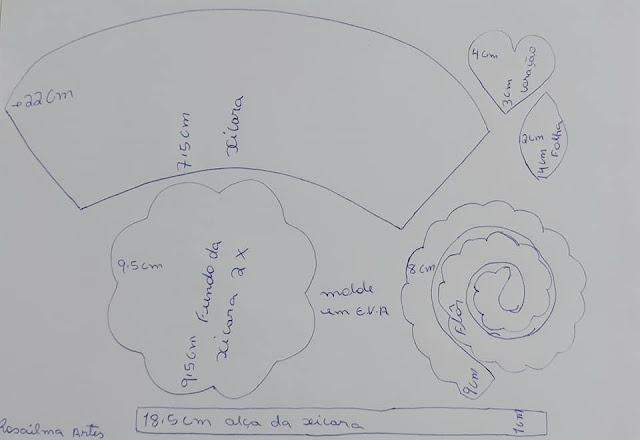 22cm
7.5cm
xicara
4cm
3cm
coração
2cm
14cm
Folha
9.5cm
9.5cm Fundo da
xicara 2x
molde
em E.V.A
8cm
Flôr
9cm
18.5cm alça da xicara
1cm
Rosailma Artes